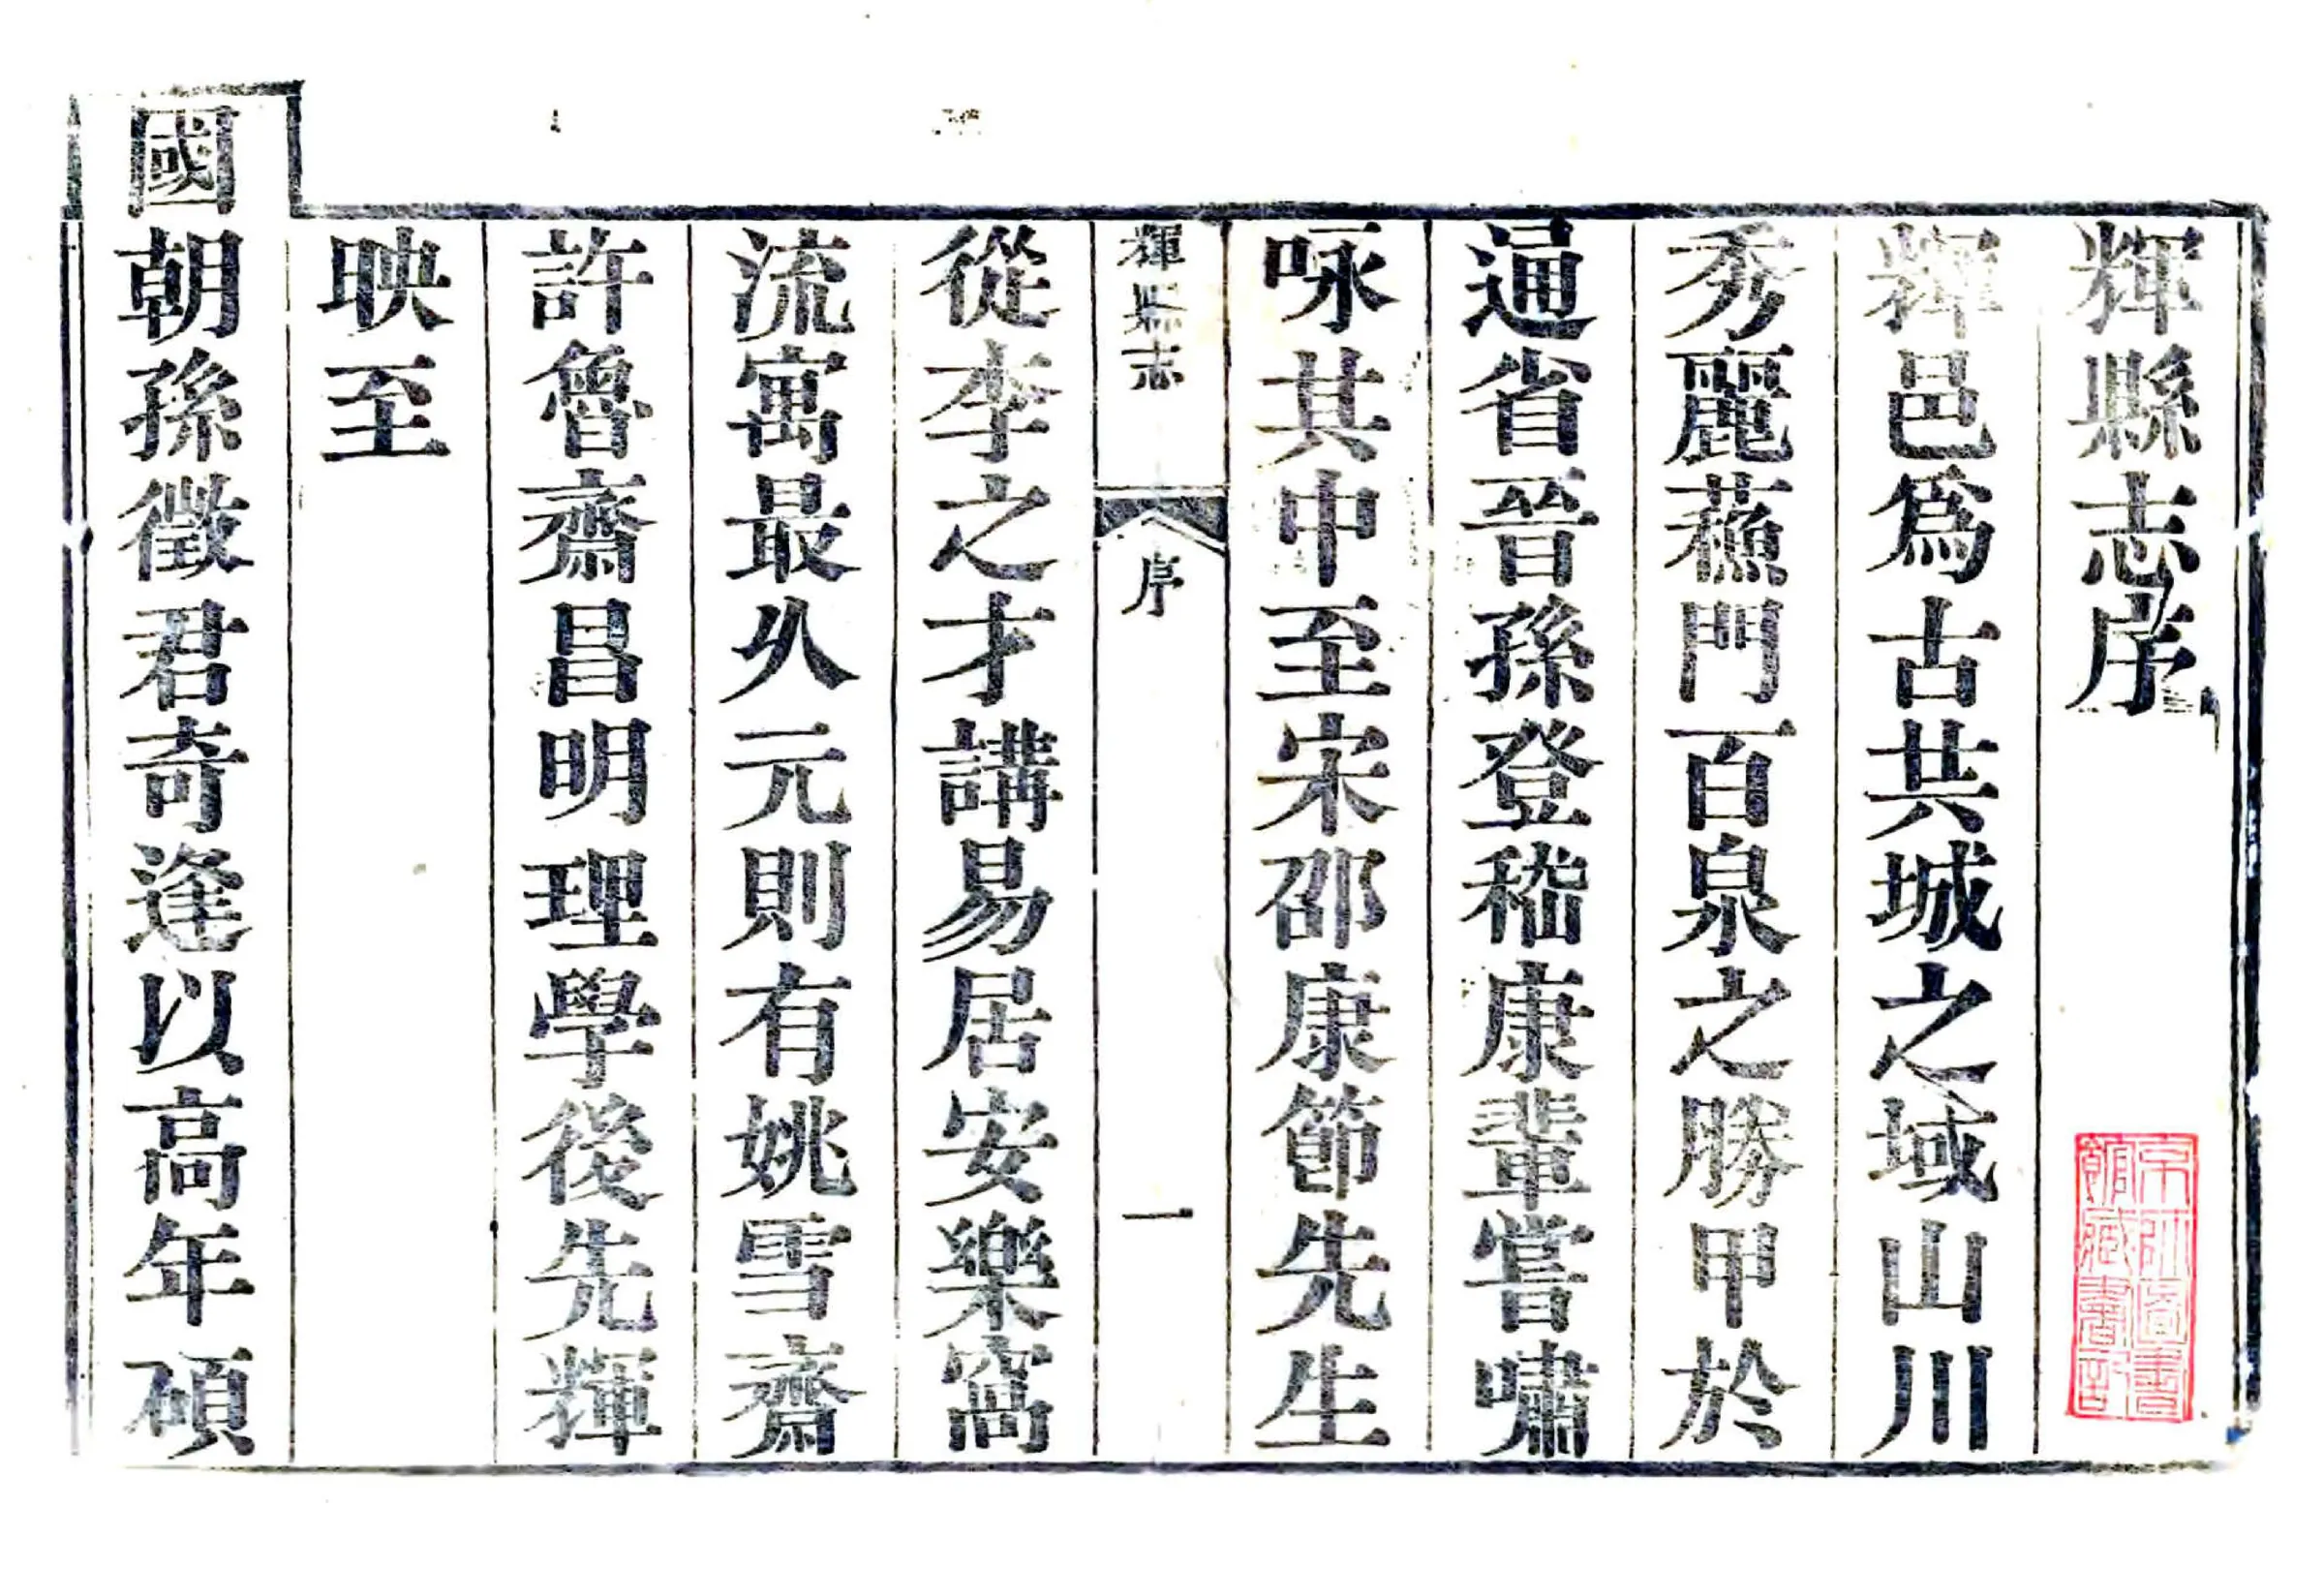 輝縣志序
輝邑爲古共城之域山川
秀麗蘓門百泉之勝甲於
通省晉孫登嵇康輩嘗嘯
咏其中至宋邵康節先生
輝縣志
序
一
從李之才講易居安樂窩
流寓最久元則有姚雪齋
許魯齋昌明理學後先輝
映至
國朝孫徵君奇逢以高年碩